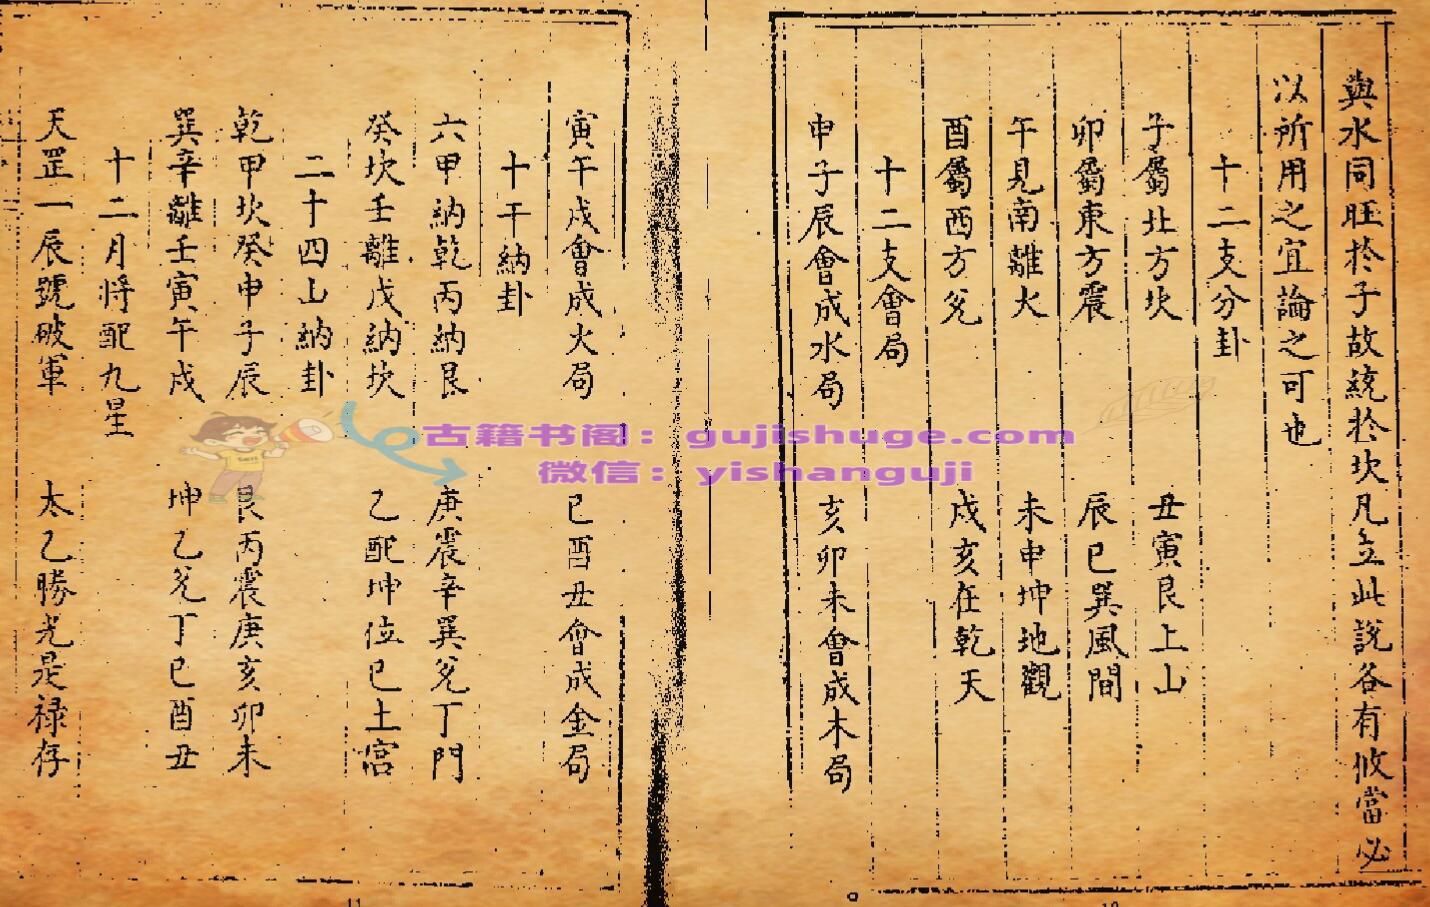 與水同旺於子故統於坎凡立此說各有攸當必
以所用之宜論之可也
十二支分卦
子屬北方坎　丑寅艮上山
卯屬東方震　辰巳巽風間
午見南離火　未申坤地觀
酉屬西方兌　戌亥在乾天
十二支會局
申子辰會成水局　亥卯未會成木局
寅午戌會成火局　巳酉丑會成金局
十干納卦
六甲納乾丙納艮　庚震辛巽兌丁門
癸坎壬離戊納坎　乙配坤位己土宮
二十四山納卦
乾甲坎癸申子辰　艮丙震庚亥卯未
巽辛離壬寅午戌　坤乙兌丁巳酉丑
十二月將配九星
天罡一辰號破軍　太乙勝光是祿存
古籍书阁：gujishuge.com
微信：yishanguji